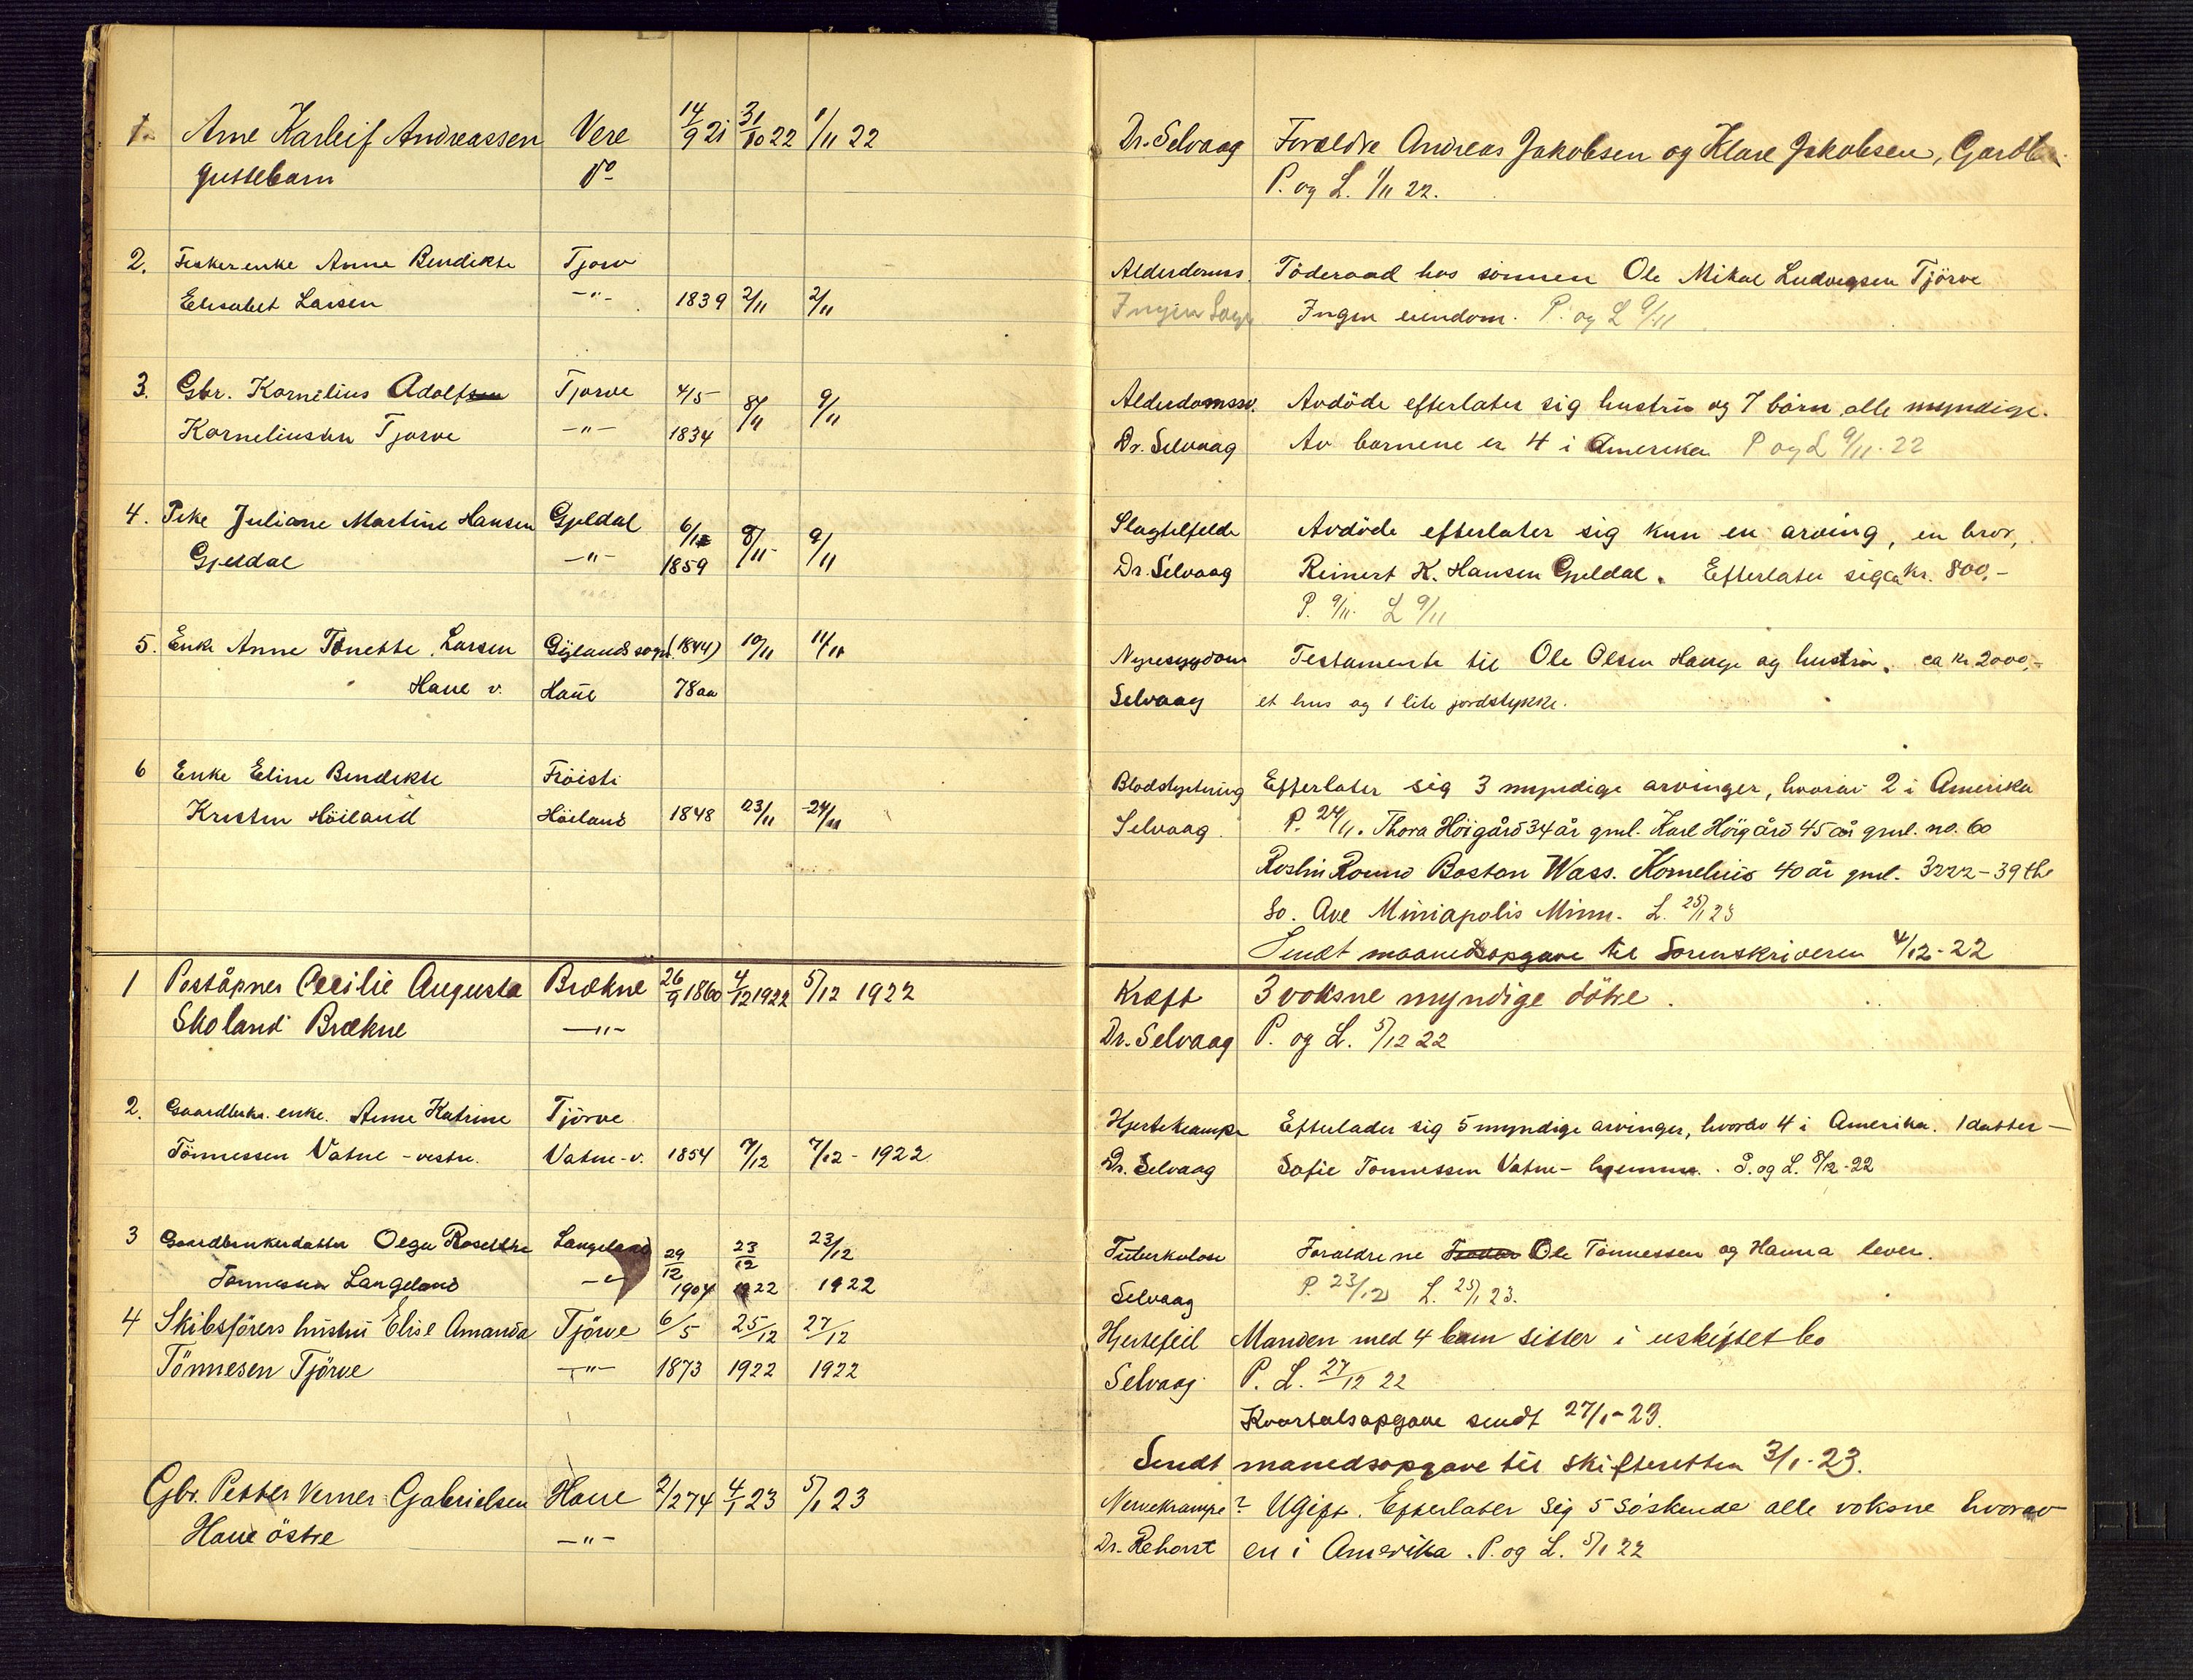 1. Arne Karleif Andreassen Vere 14/9 21 31/10 22 1/11 22 Dr. Selvaag Forældre Andreas Jakobsen og Klare Jakobsen,
guttebarn do P. og L. 1/11 22.
2. Fiskerenke Anne Bendikte Tjorv Alderdoms. Föderaad hos sönnen Ole Mikal Ludvigsen Tjörve
Elisabet Larsen -"- 1839 2/11 2/11 Ingen Ingen eiendom. P. og L 9/11
3. Gbr. Kornelius Adolf Tjorve 4/5 8/11 9/11 Alderdomssv. Avdöde efterlater sig hustru og 7 börn alle myndige.
Korneliussen Tjorve -"- 1834 Dr. Selvaag Av barnene er 4 i Amerika P og L 9/11-22
4. Pike Juliane Martine Hansen Gjeldal 6/12 8/11 9/11 Slagtelfelde Avdöde efterlater sig kun en arving, en bror,
Gjeldal -"- 1859 Dr. Selvaag Reinert K. Hansen Gjeldal. Efterlater sig ca kr. 800,-
P. 9/11. L 9/11
5. Enke Anne Tonette Larsen Gylands sogn (1844) 10/11 11/11 Nyresygdom Testamente til Ole Olsen Hauge og hustru. ca kr 2000,-
Haue v. Haue 78 aa Selvaag et hus og 1 lite jordstykke.
6 Enke Eline Bendikte Fröisti Blodstyrtning Efterlater sig 3 myndige arvinger, hvorav 2 i Amerika
Kristin Höiland Höiland 1848 23/11 24/11 Selvaag. P. 24/11. Thora Höigård 34 år gml. Karl Höigård 45 år gml. no. 60
Roslin Round Boston Wass. Kornelius 40 år gml. 3222-39 the
So. Ave Miniapolis Minn. L. 25/1 23
Sendt maanedsopgave til Sorenskriveren 4/12-22
1 Poståpner Cecilie Augusta Brækne 26/9 1860 4/12 1922 5/12 1922 Kræft 3 voksne myndige dötre.
Skoland Brækne -"- Dr. Selvaag P. og L. 5/12 22
2. Gaardbrkr. enke. Anne Katrine Tjörve Hjertekrampe Efterlader sig 5 myndige arvinger, hvorav 4 i Amerika. 1 datter-
Tönnessen Vatne - vestre. Vatne-v. 1854 7/12 7/12 - 1922 Dr. Selvaag Sofie Tonnessen Vatne - hjemme. P. og L. 8/12-22
3 Gaardbrukerdatter Olga Langeland 29/12 23/12 23/12 Tuberkulose Foraldrene Ole Tönnessen og Hanna lever.
Tonnessen Langeland -"- 1904 1922 1922 Selvaag P. 23/12 L. 25/1 23.
4 Skibsförers hustru Elise Amanda Tjörve 6/5 25/12 27/12 Hjertefeil Manden med 4 barn sitter i uskiftet bo
Tönnesen Tjörve -"- 1873 1922 1922 Selvaag P. L. 27/12 22
Kvartalsopgave sendt 27/1-23.
Sendt manedsopgave til skifteretten 3/1-23.
Gbr. Petter Verner Gabrielsen Haue 2/2 74 4/1 23 5/1 23 Nervekrampe? Ugift. Efterlater sig 5 söskende alle voksne hvorav
Haue östre -"- Dr. Rehorst en i Amerika. P. og L. 5/1 22